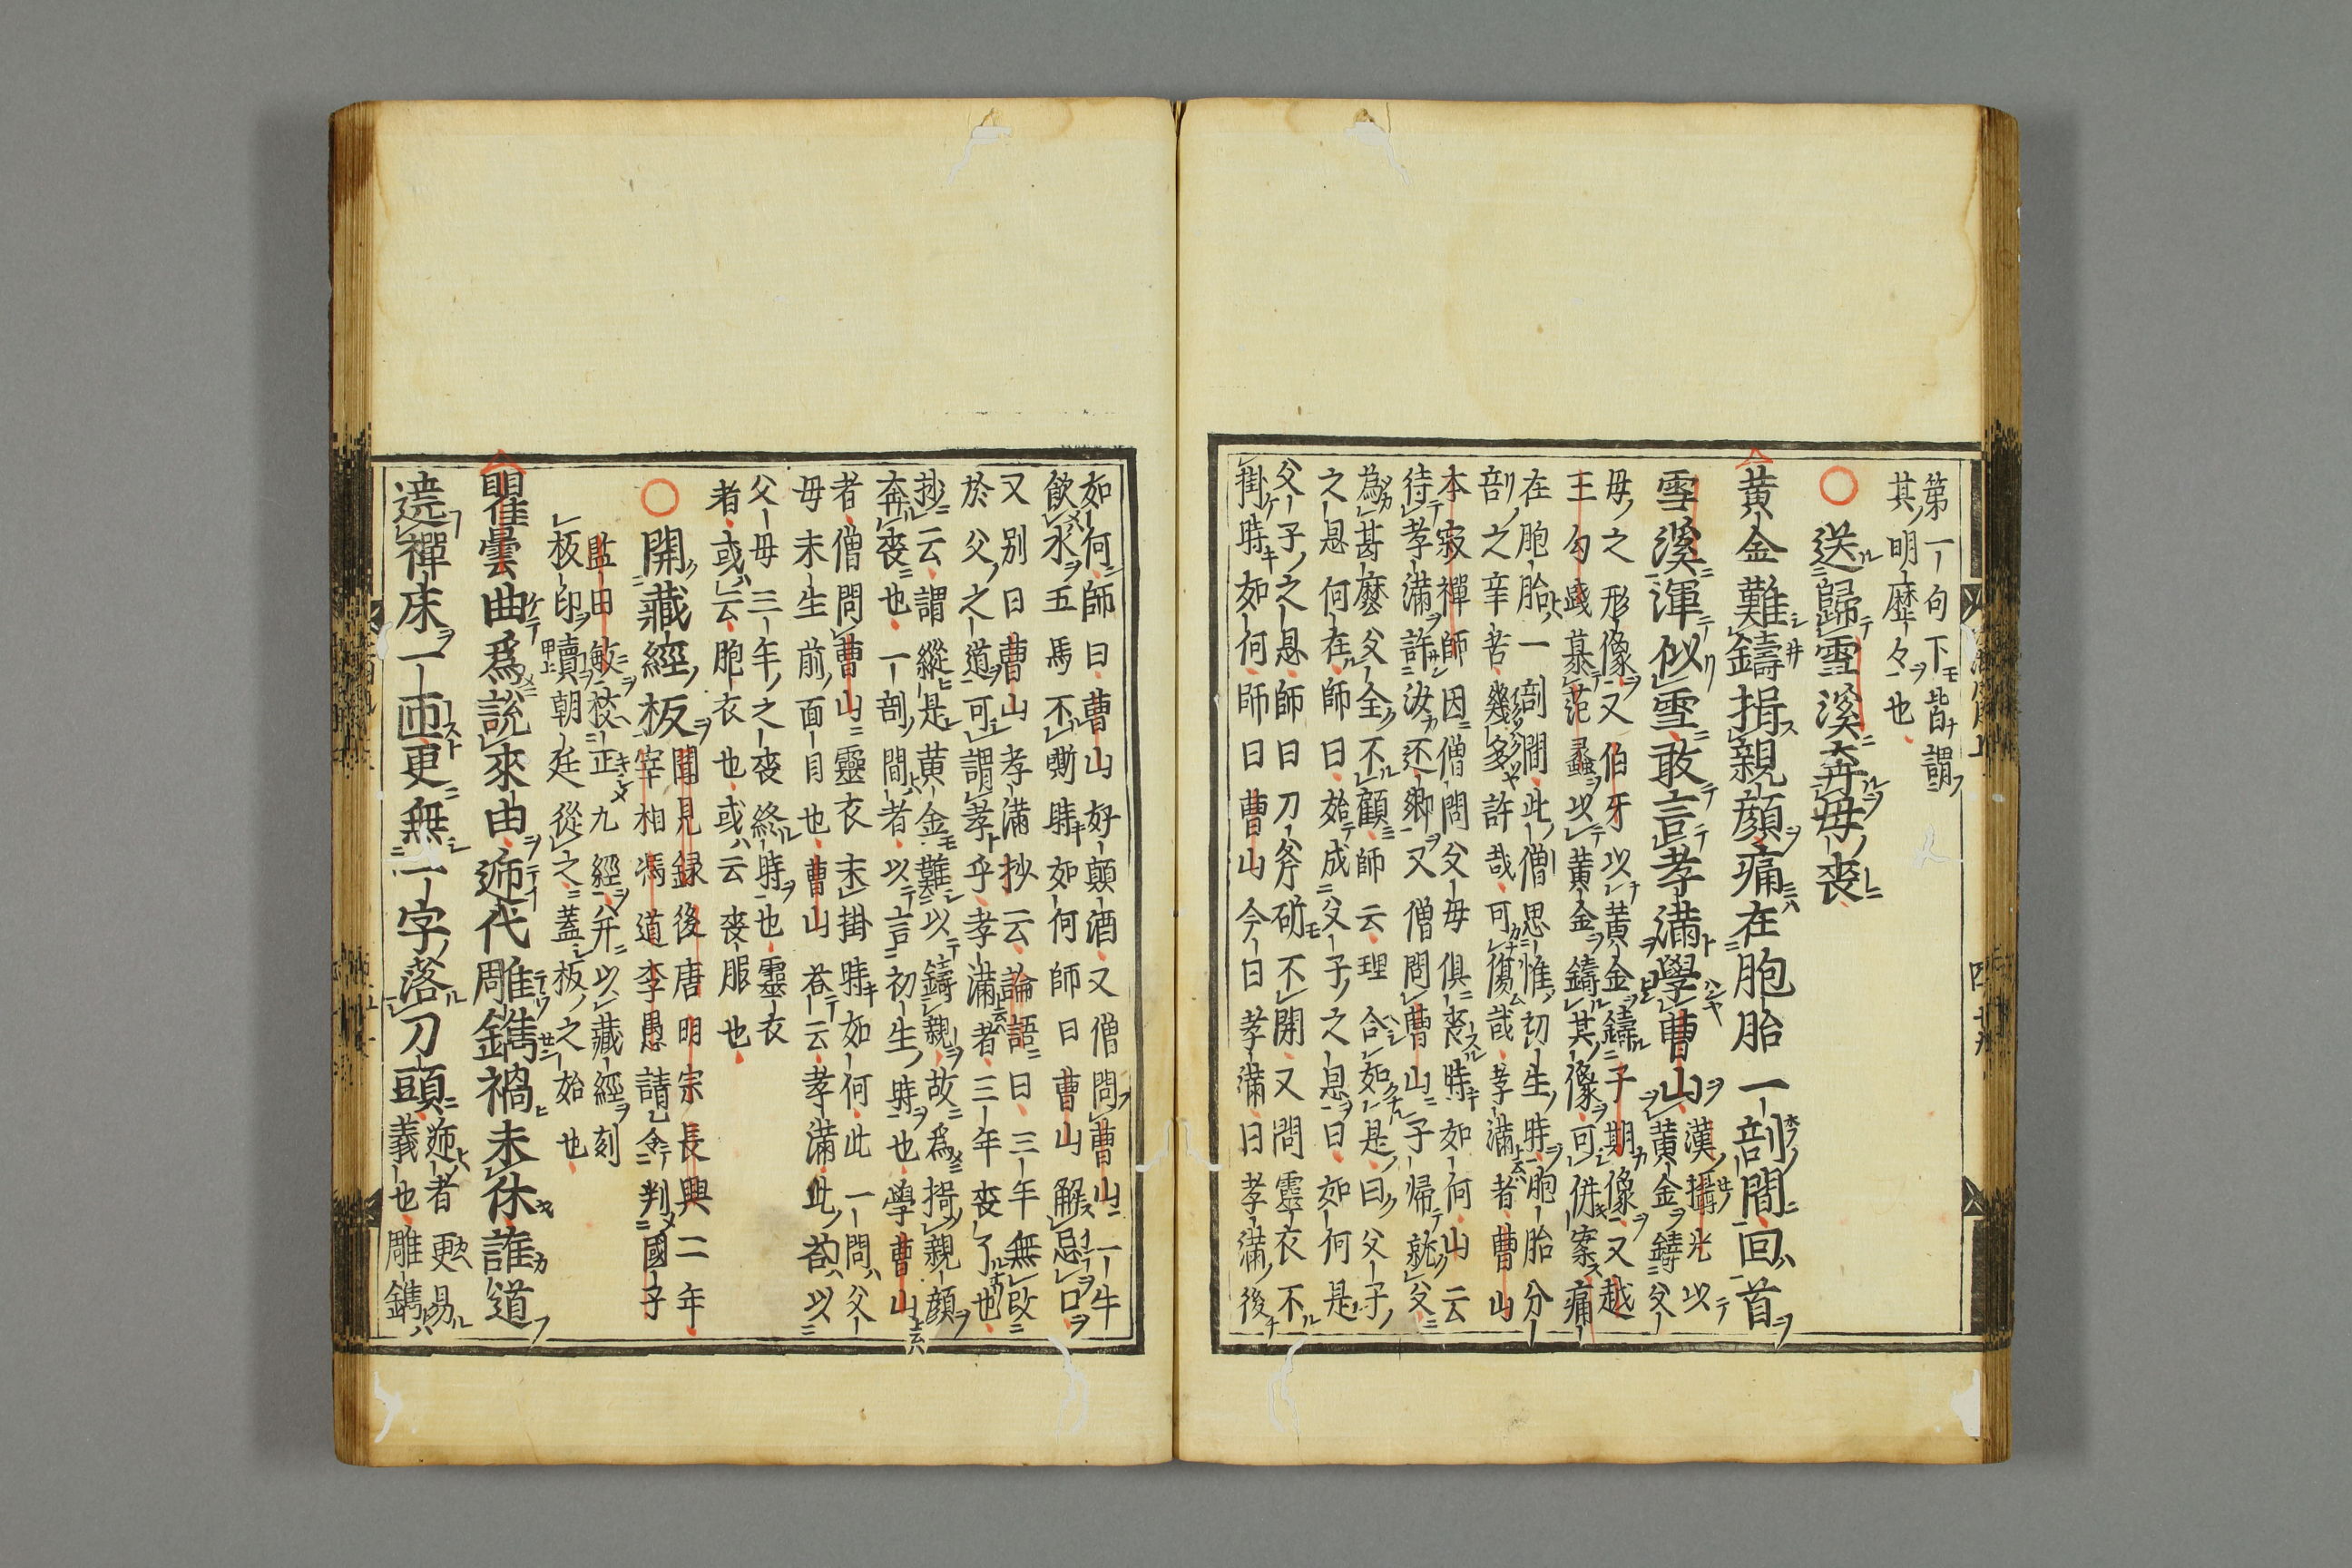 第一句下皆謂
其明歴々也
送歸雪溪奔母喪
黄金難鑄損親顔痛在胞胎一剖間回首
雪溪渾似雪敢言孝滿學曹山
漢攝光以
黄金鑄父
母之形像又伯牙以黄金鑄子期像又越
王勾踐慕范蠡以黄金鑄其像可併案痛
在胞胎一剖間此僧思惟初生時胞胎分
剖之辛苦幾多許哉可傷哉孝滿者曹山
本寂禪師因僧問父母俱喪時如何山云
待孝滿許汝还郷又僧問曹山子帰就父
為甚麼父全不顧師云理合如是曰父子
之恩何在師曰始成父子之恩曰如何是
父子之恩師曰刀斧斫不開又問靈衣不
掛時如何師曰曹山今日孝滿曰孝滿後
如何師曰曹山好顛酒又僧問曹山一牛
飲水五馬不嘶時如何師曰曹山解忌口
又別曰曹山孝滿抄云論語曰三年無改
於父之道可謂孝乎孝滿者三年喪了也
抄云謂縱是黄金難以鑄親故為損親顔
奔喪也一剖間者以言初生時也學曹山
者僧問曹山靈衣末掛時如何此一問父
母未生前面目也曹山荅云孝滿此荅以
父母三年之喪終時也靈衣
者或云胞衣也或云喪服也
開藏經板
聞見録後唐明宗長興二年
宰相馮道李愚請令判國子
監田敏校正九經并以藏經刻
板印賣朝廷從之蓋板之始也
瞿曇曲為説來由近代雕鐫禍未休誰道
遶禪床一匝更無一字落刀頭
近者更易
義也雕鐫